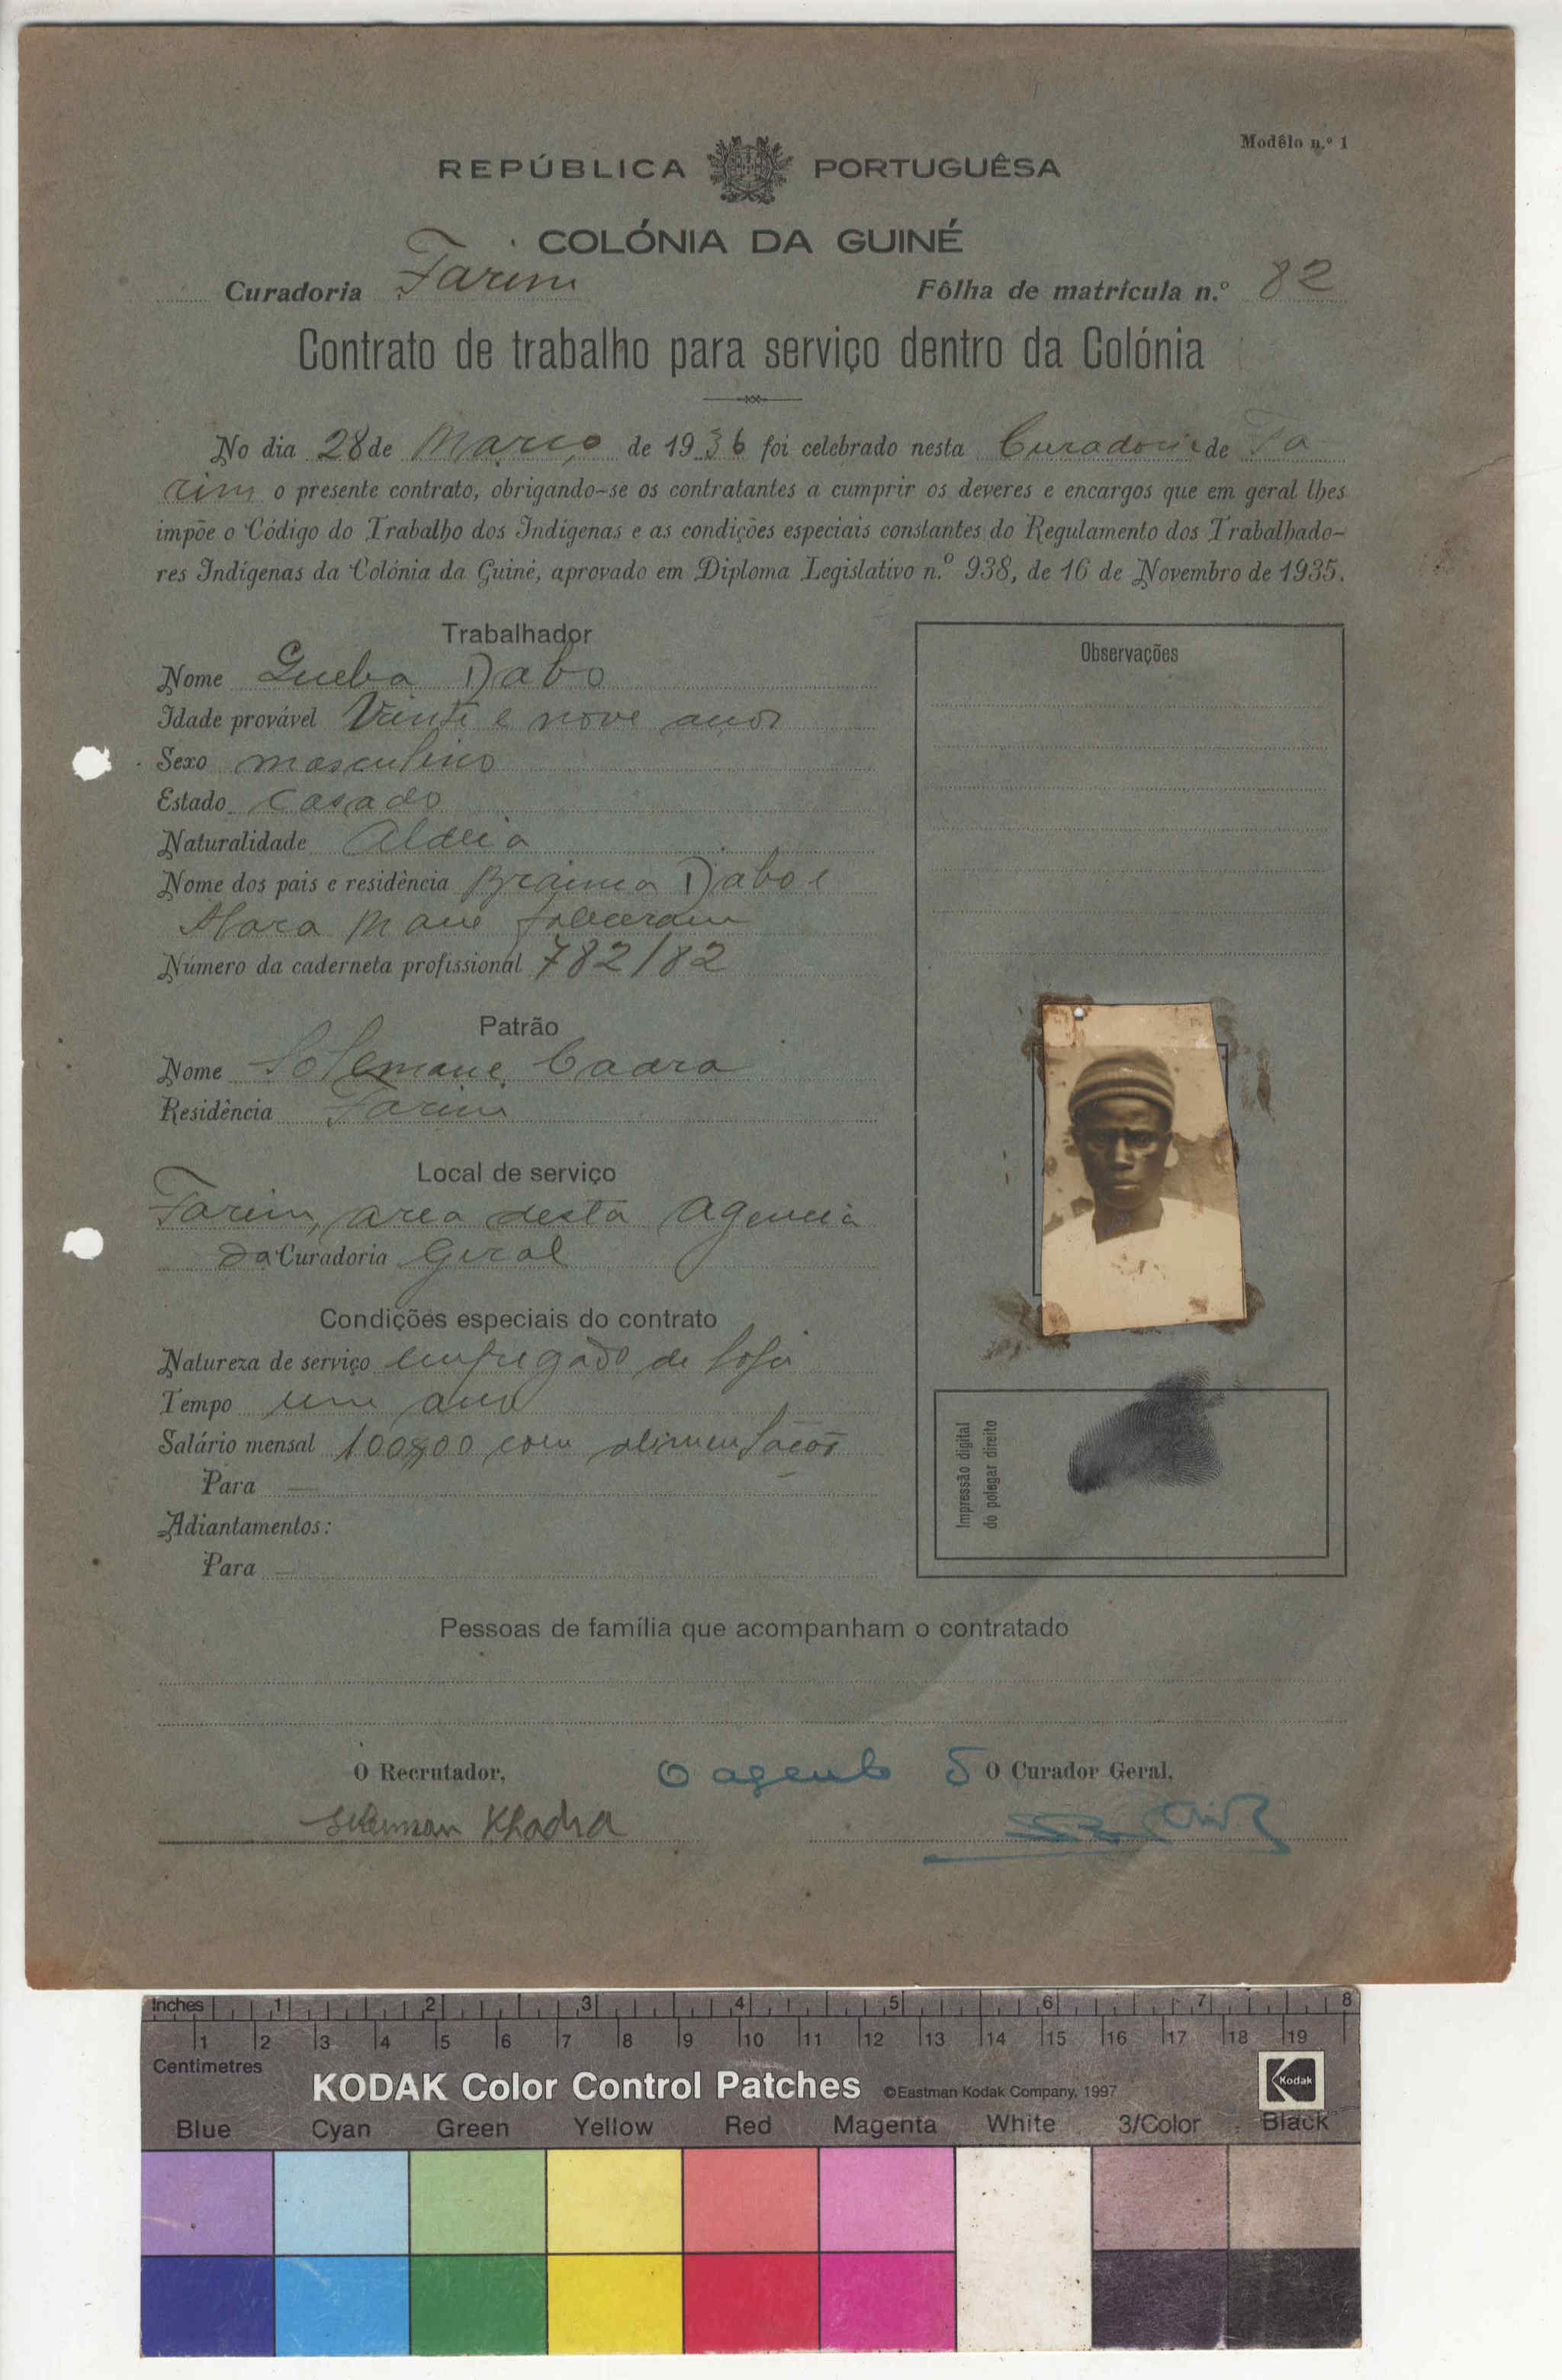 Modêlo n.º 1
REPÚBLICA PORTUGUÊSA
COLÓNIA DA GUINÉ
Curadoria Farim Fôlha de matrícula n.º 82
Contrato de trabalho para serviço dentro da Colónia
No dia 28 de Março de 1936 foi celebrado nesta Curadoria de Fa
rim o presente contrato, obrigando-se os contratantes a cumprir os deveres e encargos que em geral lhes
impõe o Código do Trabalho dos Indígenas e as condições especiais constantes do Regulamento dos Trabalhado-
res Indígenas da Colónia da Guiné, aprovado em Diploma Legislativo n.º 938, de 16 de Novembro de 1935.
Trabalhador
Nome Queba Dabo
Idade provável Vinte e nove anos
Sexo masculino
Estado casado
Naturalidade Aldeia
Nome dos pais e residência Braima Dabo e
Mara Mané faleceram
Número da caderneta profissional 782/82
Patrão
Nome Solemane Cadra
Residência Farim
Local de serviço
Farim, area desta Agencia
da Curadoria Geral
Condições especiais do contrato
Natureza de serviço empregado de loja
Tempo um ano
Salário mensal 100$00 com alimentação
Para —
Adiantamentos:
Para —
Observações
Impressão digital
do polegar direito
Pessoas de família que acompanham o contratado
O Recrutador, O agente O Curador Geral,
Khadra
Inches 1 2 3 4 5 6 7 8
1 2 3 4 5 6 7 8 9 10 11 12 13 14 15 16 17 18 19
Centimetres
KODAK Color Control Patches ©Eastman Kodak Company, 1997 Kodak
Blue Cyan Green Yellow Red Magenta White 3/Color Black